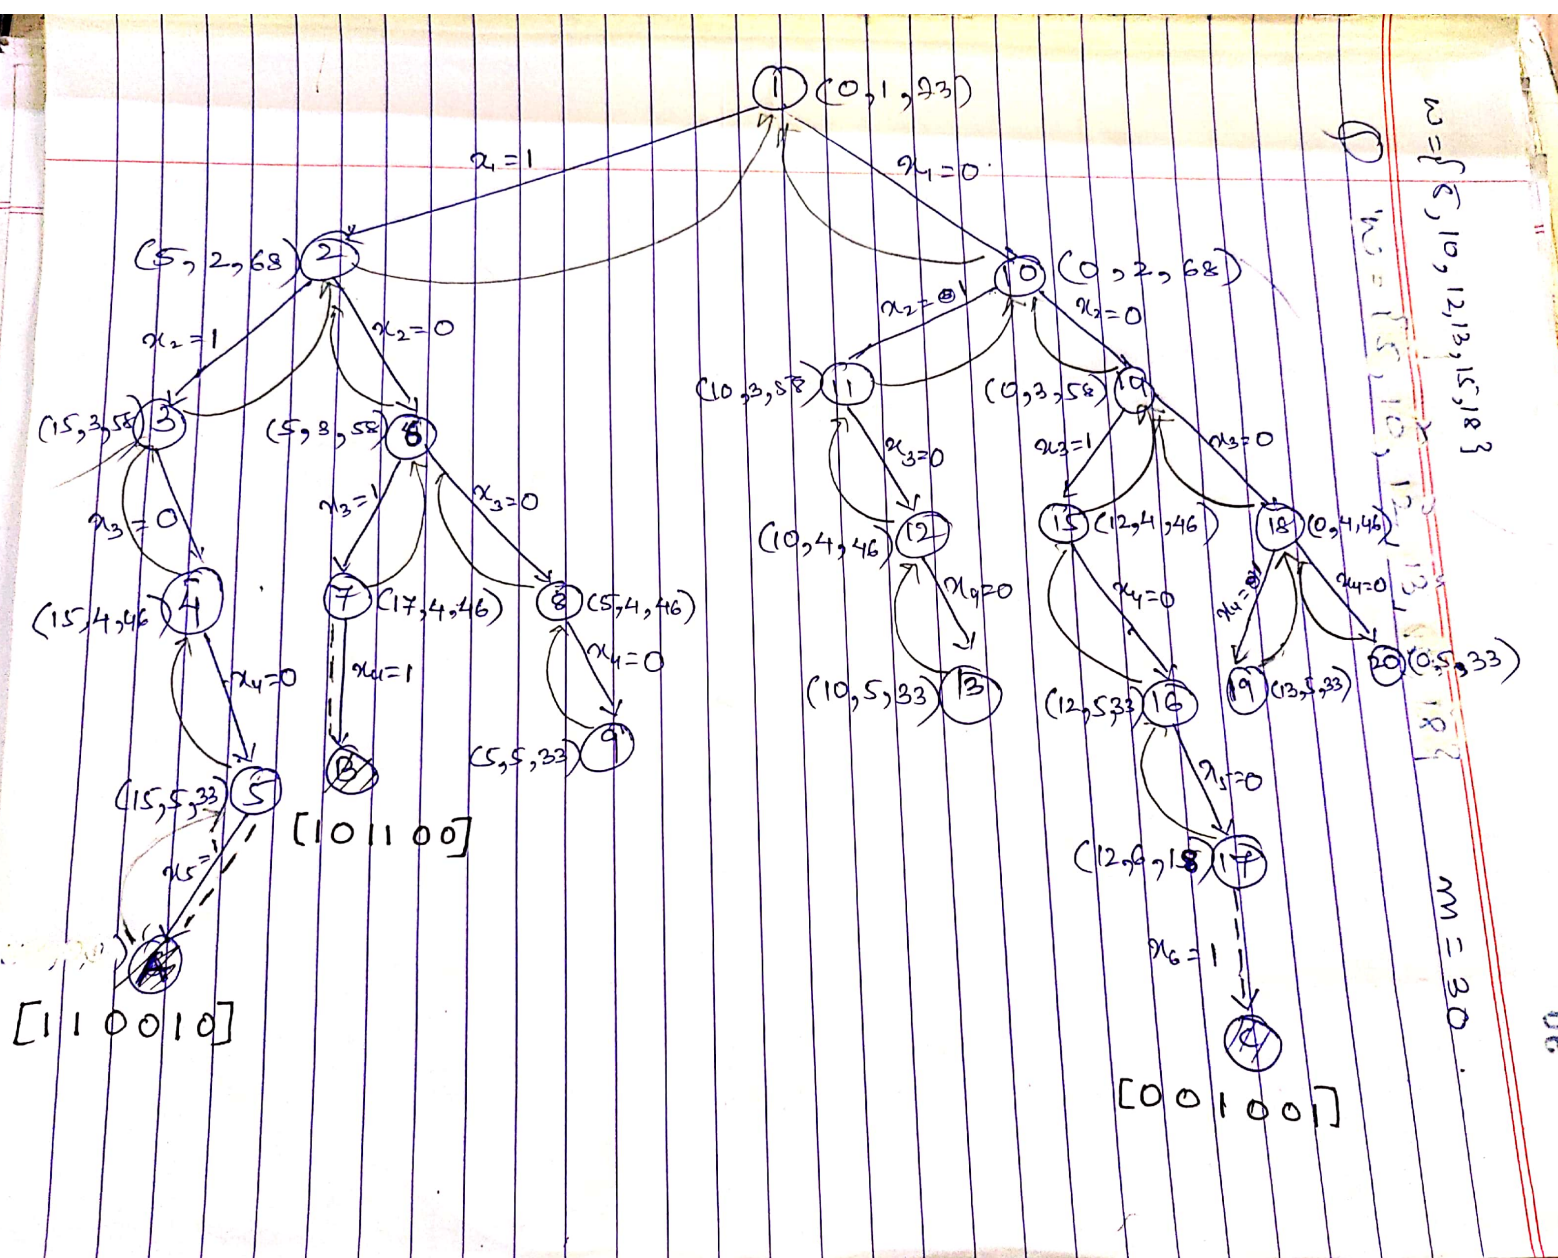 1 (0,1,73)
x₁=1
x₁=0
2 (5,2,68)
10 (0,2,68)
x₂=1
x₂=0
x₂=
x₂=0
3 (15,3,58)
6 (5,3,58)
11 (10,3,58)
(0,3,58)
x₃=0
x₃=1
x₃=0
x₃=0
x₃=1
x₃=0
4 (15,4,46)
7 (17,4,46)
8 (5,4,46)
12 (10,4,46)
15 (12,4,46)
18 (0,4,46)
x₄=0
x₄=1
x₄=0
x₄=0
x₄=0
x₄=
x₄=0
5 (15,5,33)
B
9 (5,5,33)
13 (10,5,33)
16 (12,5,33)
19 (13,5,33)
20 (0,5,33)
[101100]
x₅=1
x₅=0
17 (12,6,18)
A
x₆=1
[110010]
C
[001001]
w={5,10,12,13,15,18}
m=30